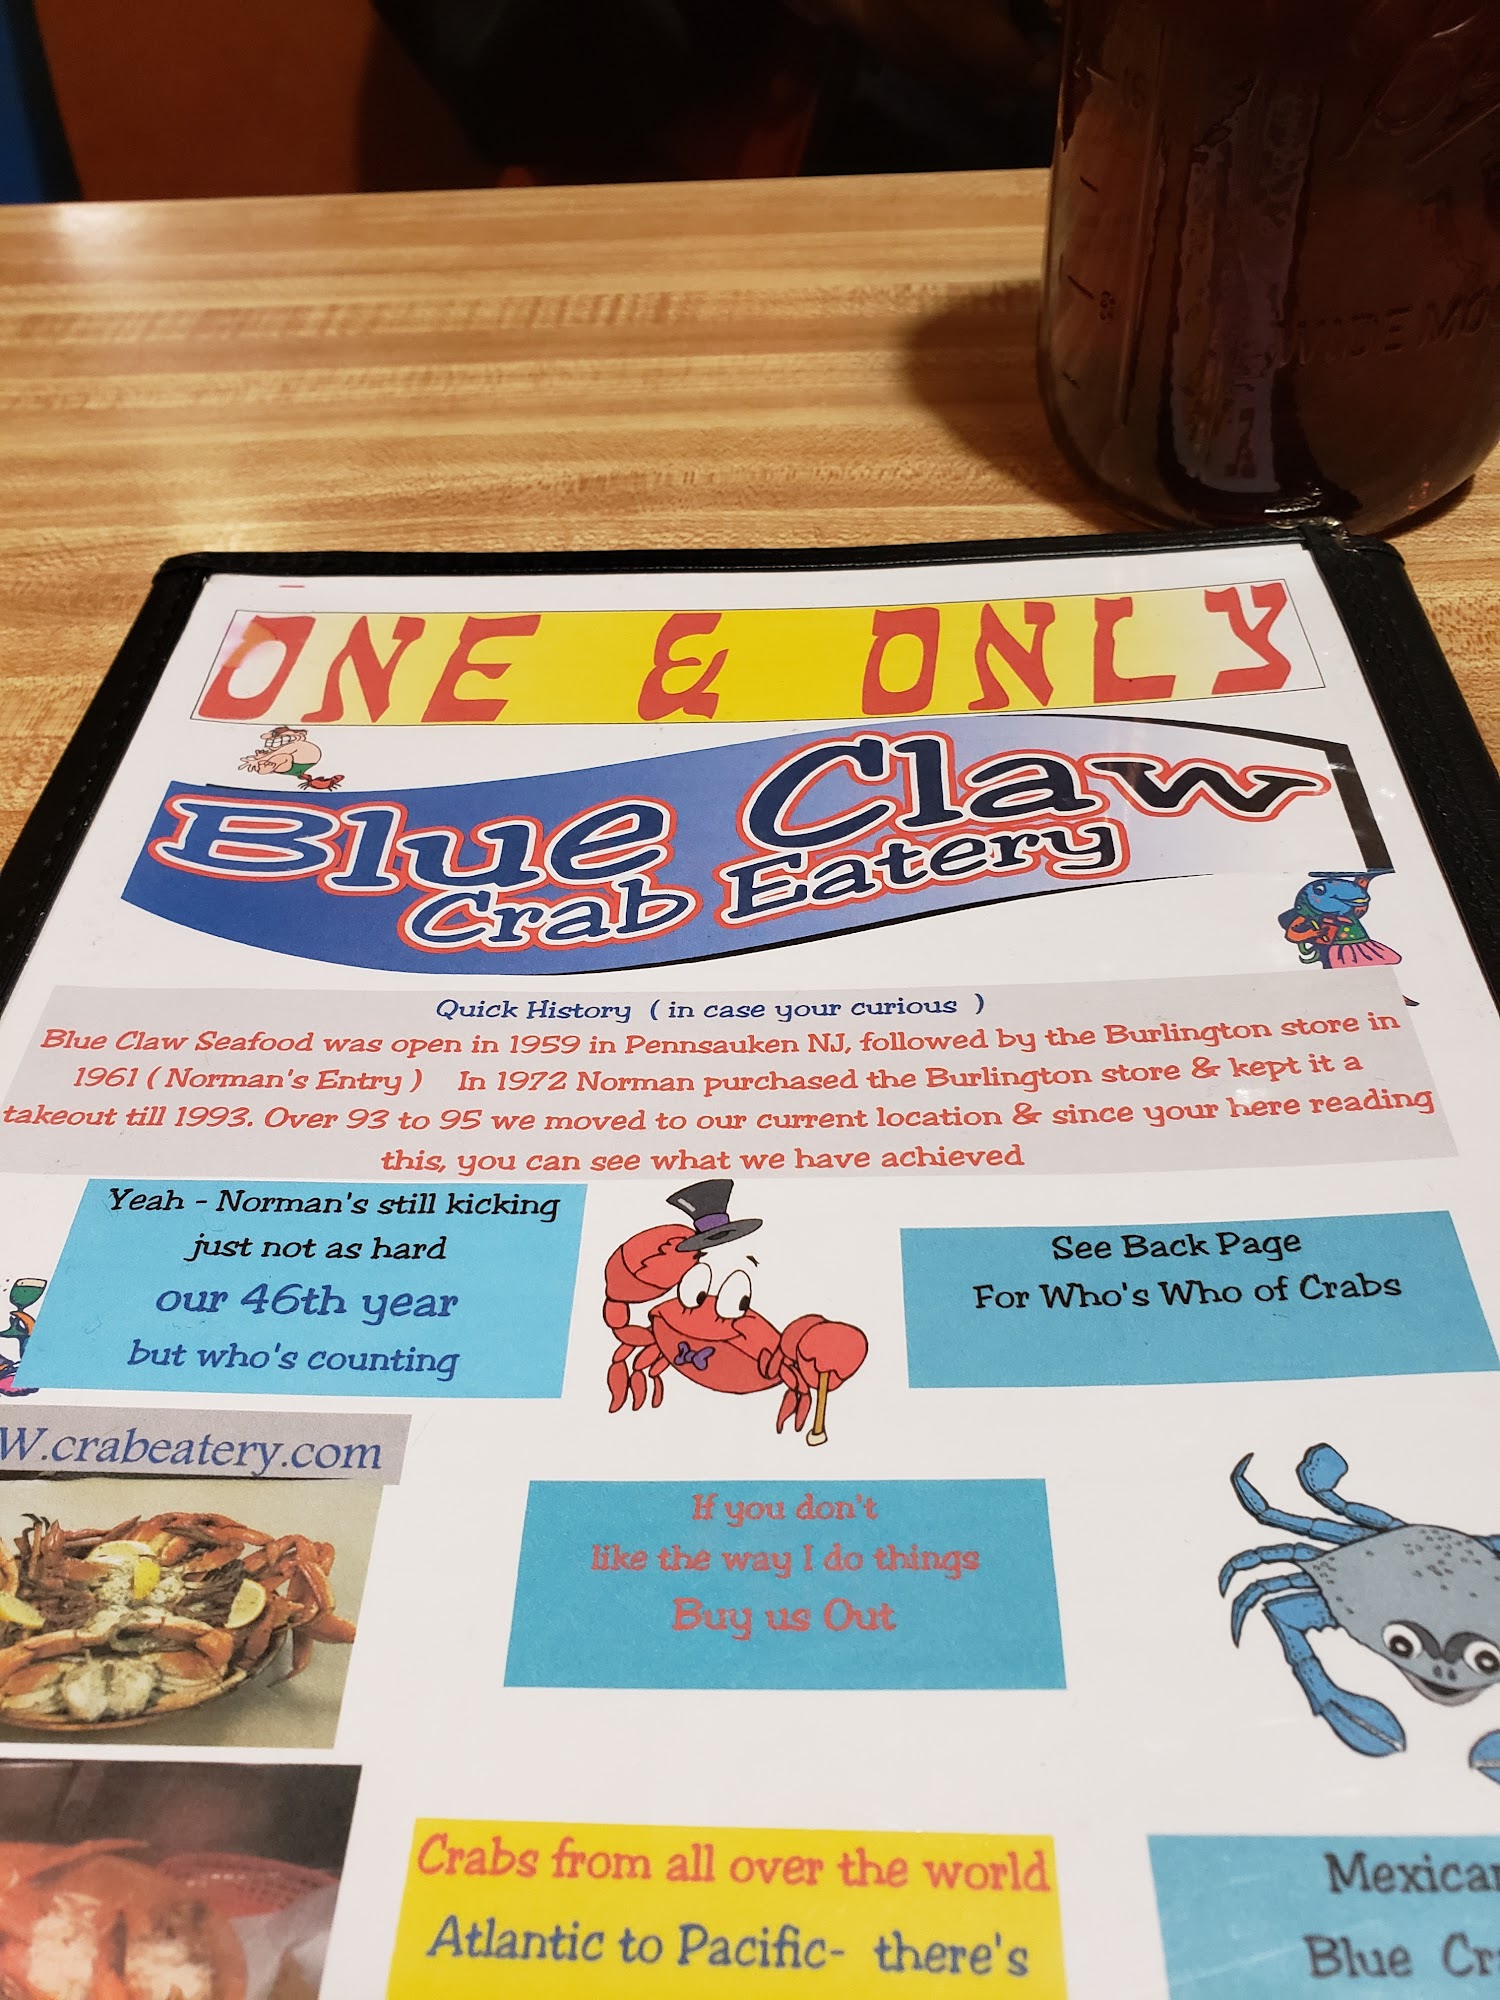 16
8
WIDE MO
ONE & ONLY
Blue Claw
Crab Eatery
Quick History ( in case your curious )
Blue Claw Seafood was open in 1959 in Pennsauken NJ, followed by the Burlington store in
1961 ( Norman's Entry ) In 1972 Norman purchased the Burlington store & kept it a
takeout till 1993. Over 93 to 95 we moved to our current location & since your here reading
this, you can see what we have achieved
Yeah - Norman's still kicking
just not as hard
our 46th year
but who's counting
See Back Page
For Who's Who of Crabs
W.crabeatery.com
If you don't
like the way I do things
Buy us Out
Crabs from all over the world
Atlantic to Pacific- there's
Mexican
Blue Cr